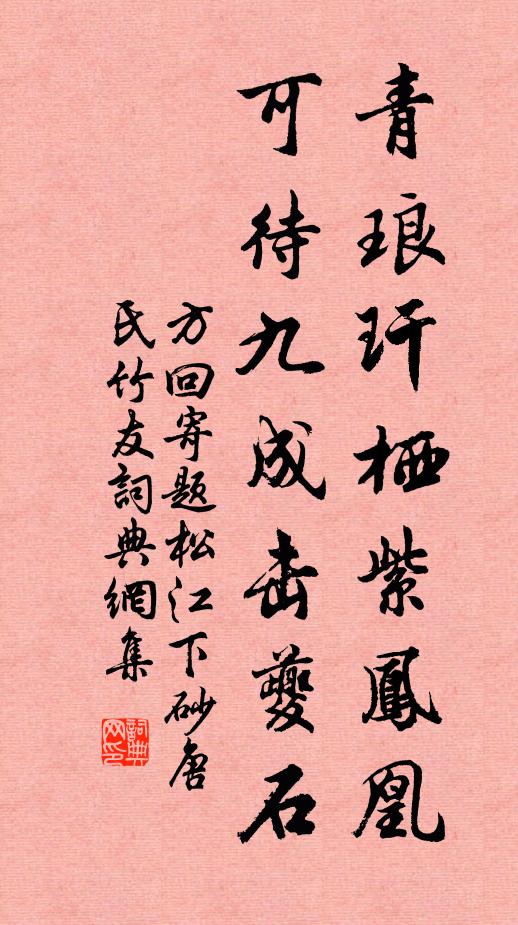 青琅玕栖紫鳳凰
可待九成击夔石
方回寄题松江下砂唐
氏竹友詞典網集
詞典网印